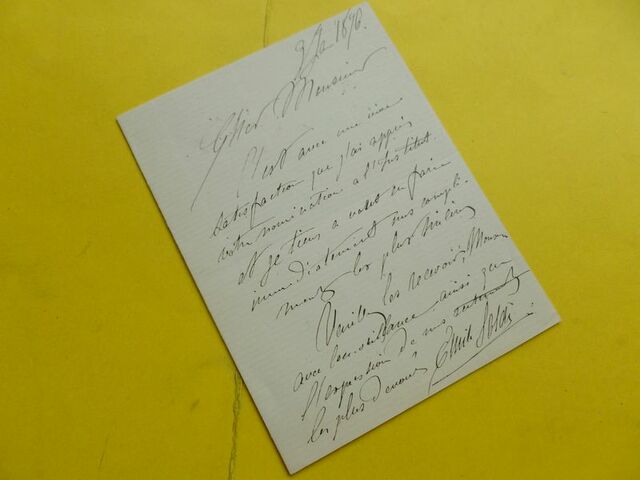 1896.
Cher Monsieur
C'est avec une vive
satisfaction que j'ai appris
votre nomination a l'Institut.
et je tiens a vous en faire
immediatement mes compli-
ments les plus sincères
Veuillez les recevoir, Monsieur
avec bienveillance ainsi que
l'expression de mes sentiments
les plus dévoués Emile Soldi